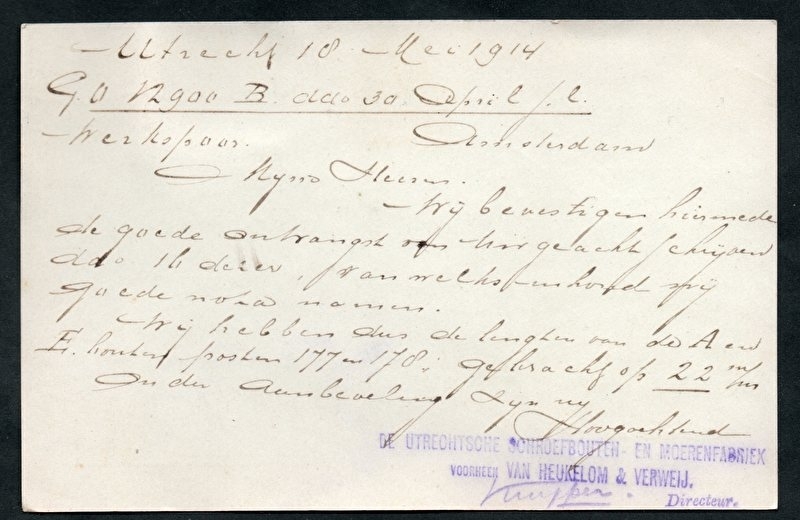 Utrecht 18 Mei 1914
G.O 12900 B. ddo 30 April j.l.
Werkspoor. Amsterdam
Mijne Heeren.
Wij bevestigen hiermede
de goede ontvangst van Uw geacht schrijven
ddo 16 dezer, van welks inhoud wij
goede nota namen.
Wij hebben dus de lengten van de A en
E. bouten posten 177 en 178 gebracht op 22 m/m
Onder Aanbeveling zijn wij
Hoogachtend
DE UTRECHTSCHE SCHROEFBOUTEN- EN MOERENFABRIEK
VOORHEEN VAN HEUKELOM & VERWEIJ.
Directeur.